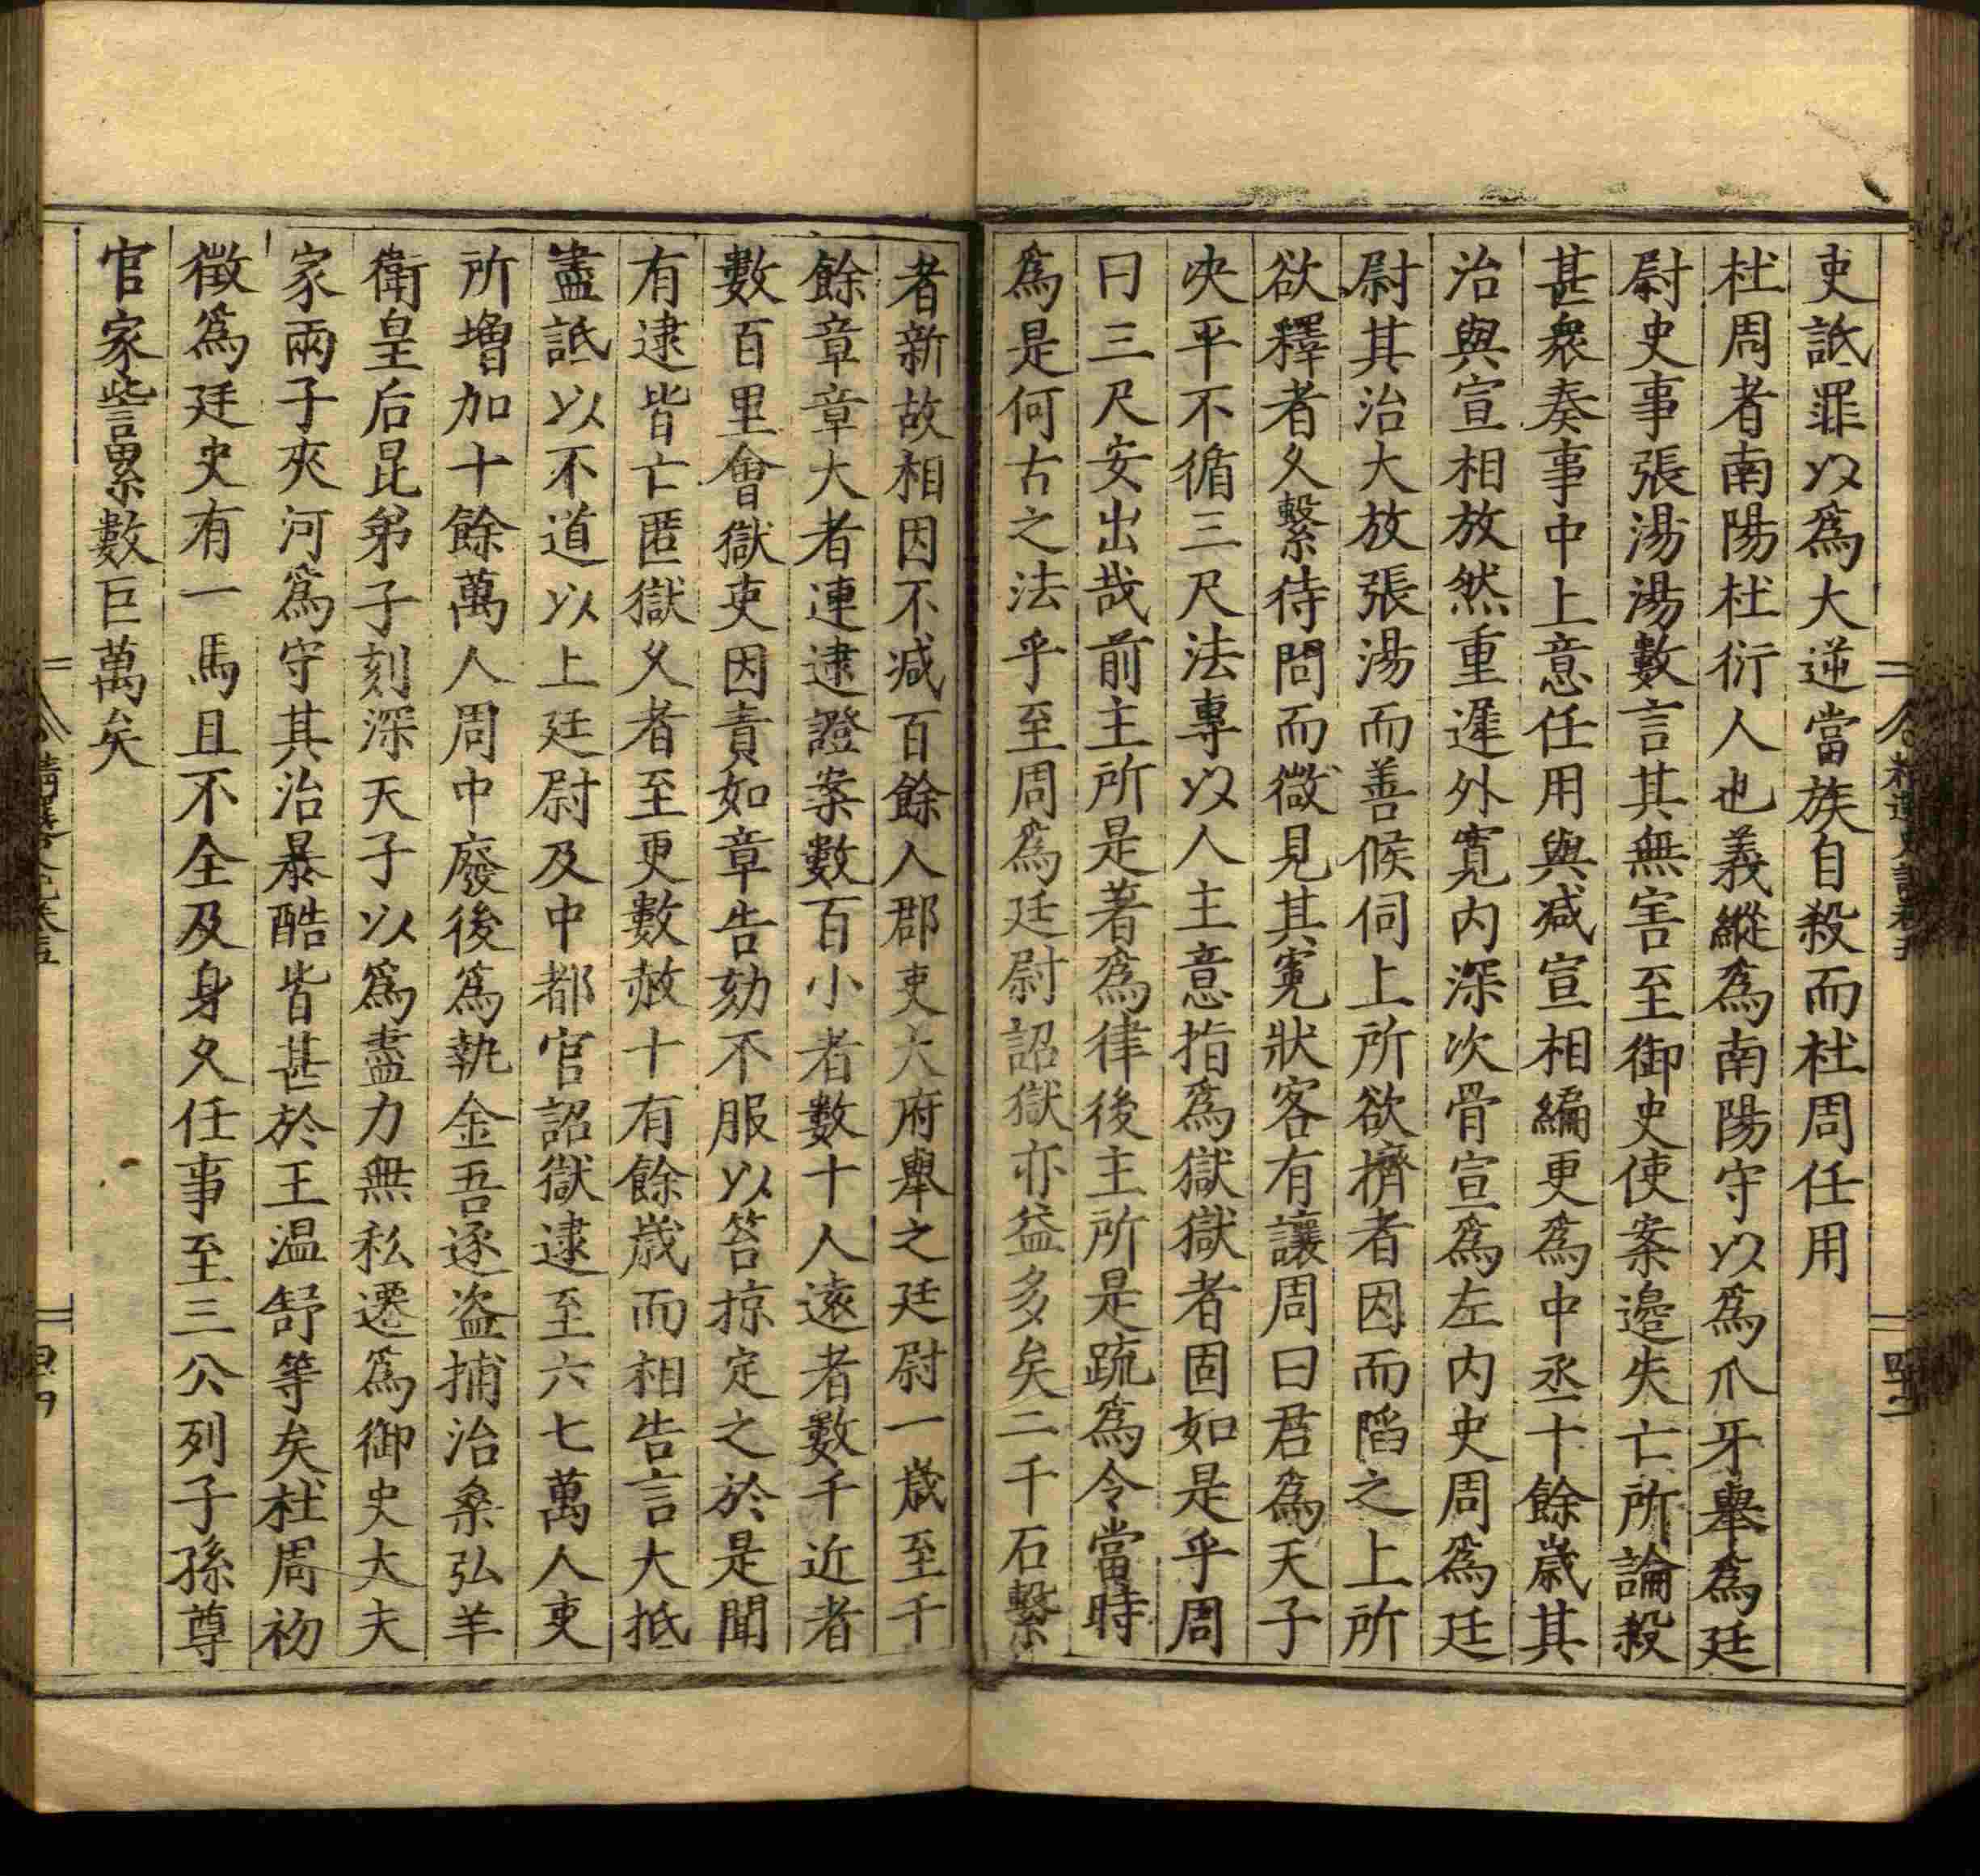 吏詆罪以爲大逆當族自殺而杜周任用
杜周者南陽杜衍人也義縱爲南陽守以爲爪牙舉爲廷
尉史事張湯湯數言其無害至御史使案邊失亡所論殺
甚衆奏事中上意任用與减宣相編更爲中丞十餘歲其
治與宣相放然重遲外寛内深次骨宣爲左内史周爲廷
尉其治大放張湯而善候伺上所欲擠者因而陷之上所
欲釋者久繫待問而微見其寃狀客有讓周曰君爲天子
决平不循三尺法專以人主意指爲獄獄者固如是乎周
曰三尺安出哉前主所是著爲律後主所是疏爲令當時
爲是何古之法乎至周爲廷尉詔獄亦益多矣二千石繫
者新故相因不减百餘人郡吏大府舉之廷尉一歲至千
餘章章大者連逮證案數百小者數十人遠者數千近者
數百里會獄吏因責如章告劾不服以笞掠定之於是聞
有逮皆亡匿獄久者至更數赦十有餘歲而相告言大抵
盡詆以不道以上廷尉及中都官詔獄逮至六七萬人吏
所增加十餘萬人周中廢後爲執金吾逐盗捕治桑弘羊
衛皇后昆弟子刻深天子以爲盡力無私遷爲御史大夫
家兩子夾河爲守其治暴酷皆甚於王温舒等矣杜周初
徵爲廷史有一馬且不全及身久任事至三公列子孫尊
官家訾累數巨萬矣